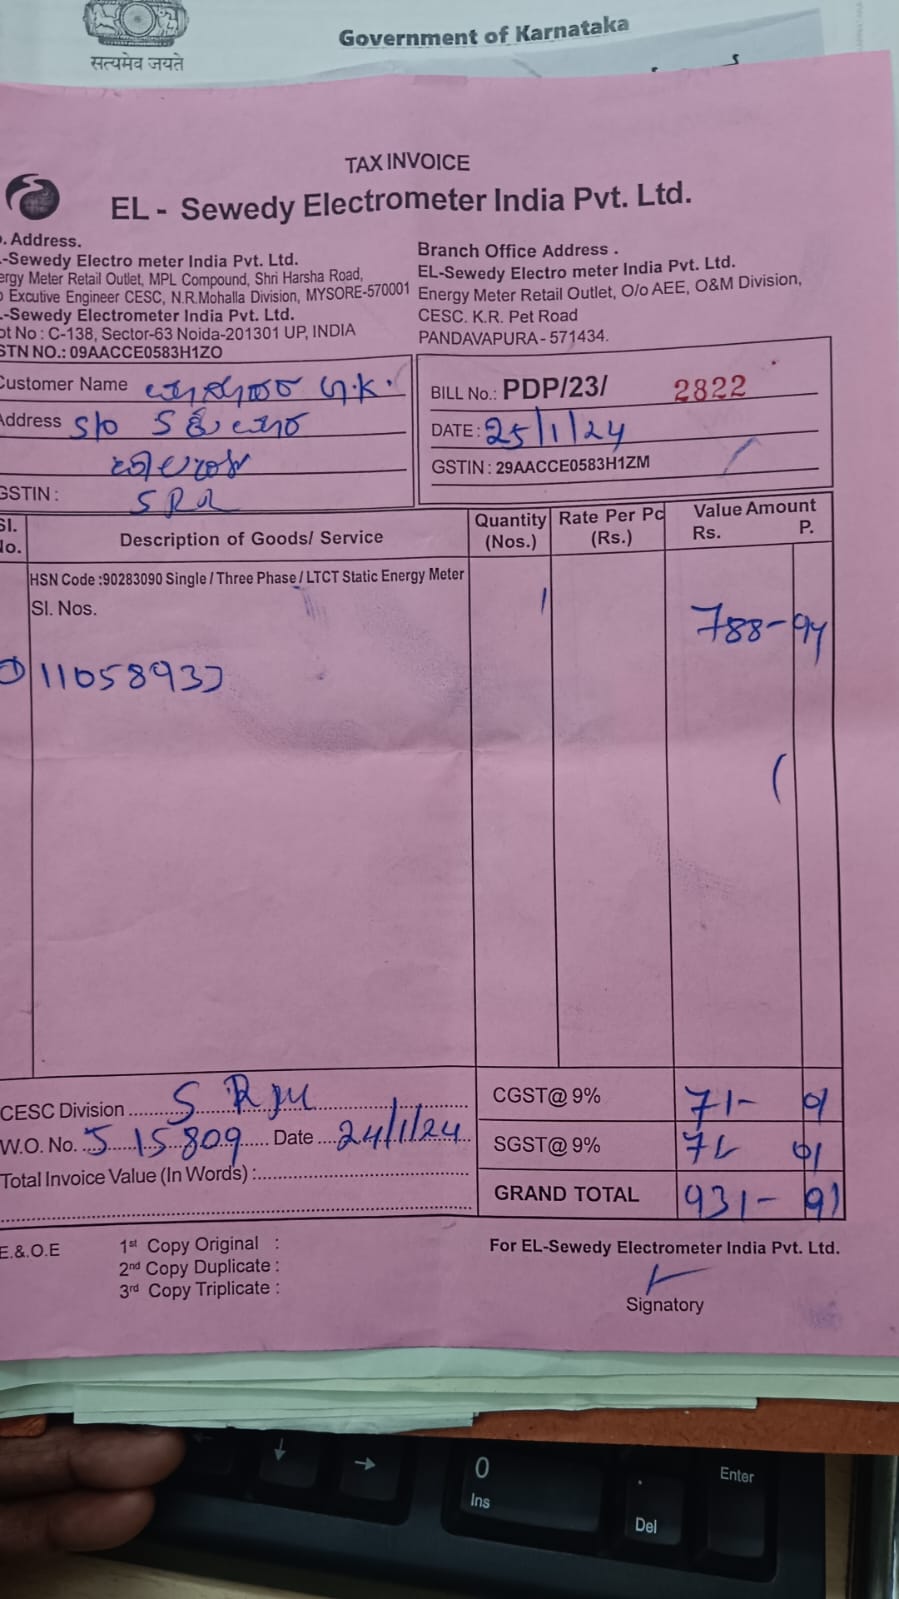 सत्यमेव जयते
Government of Karnataka
TAX INVOICE
EL - Sewedy Electrometer India Pvt. Ltd.
. Address.
-Sewedy Electro meter India Pvt. Ltd.
ergy Meter Retail Outlet, MPL Compound, Shri Harsha Road,
Excutive Engineer CESC, N.R.Mohalla Division, MYSORE-570001
-Sewedy Electrometer India Pvt. Ltd.
ot No : C-138, Sector-63 Noida-201301 UP, INDIA
STN NO.: 09AACCE0583H1ZO
Branch Office Address .
EL-Sewedy Electro meter India Pvt. Ltd.
Energy Meter Retail Outlet, O/o AEE, O&M Division,
CESC. K.R. Pet Road
PANDAVAPURA - 571434.
Customer Name
Address S/o
GSTIN :
BILL No.: PDP/23/ 2822
DATE : 25/1/24
GSTIN : 29AACCE0583H1ZM
Sl. No. Description of Goods/ Service Quantity (Nos.) Rate Per Pc (Rs.) Value Amount Rs. P.
HSN Code :90283090 Single / Three Phase / LTCT Static Energy Meter
Sl. Nos. 1 788-94
CESC Division
W.O. No. 515809 Date 24/1/24
Total Invoice Value (In Words) :
CGST@ 9% 71- 01
SGST@ 9% 71 01
GRAND TOTAL 931- 91
E.&.O.E
1st Copy Original :
2nd Copy Duplicate :
3rd Copy Triplicate :
For EL-Sewedy Electrometer India Pvt. Ltd.
Signatory
0
Ins
.
Del
Enter